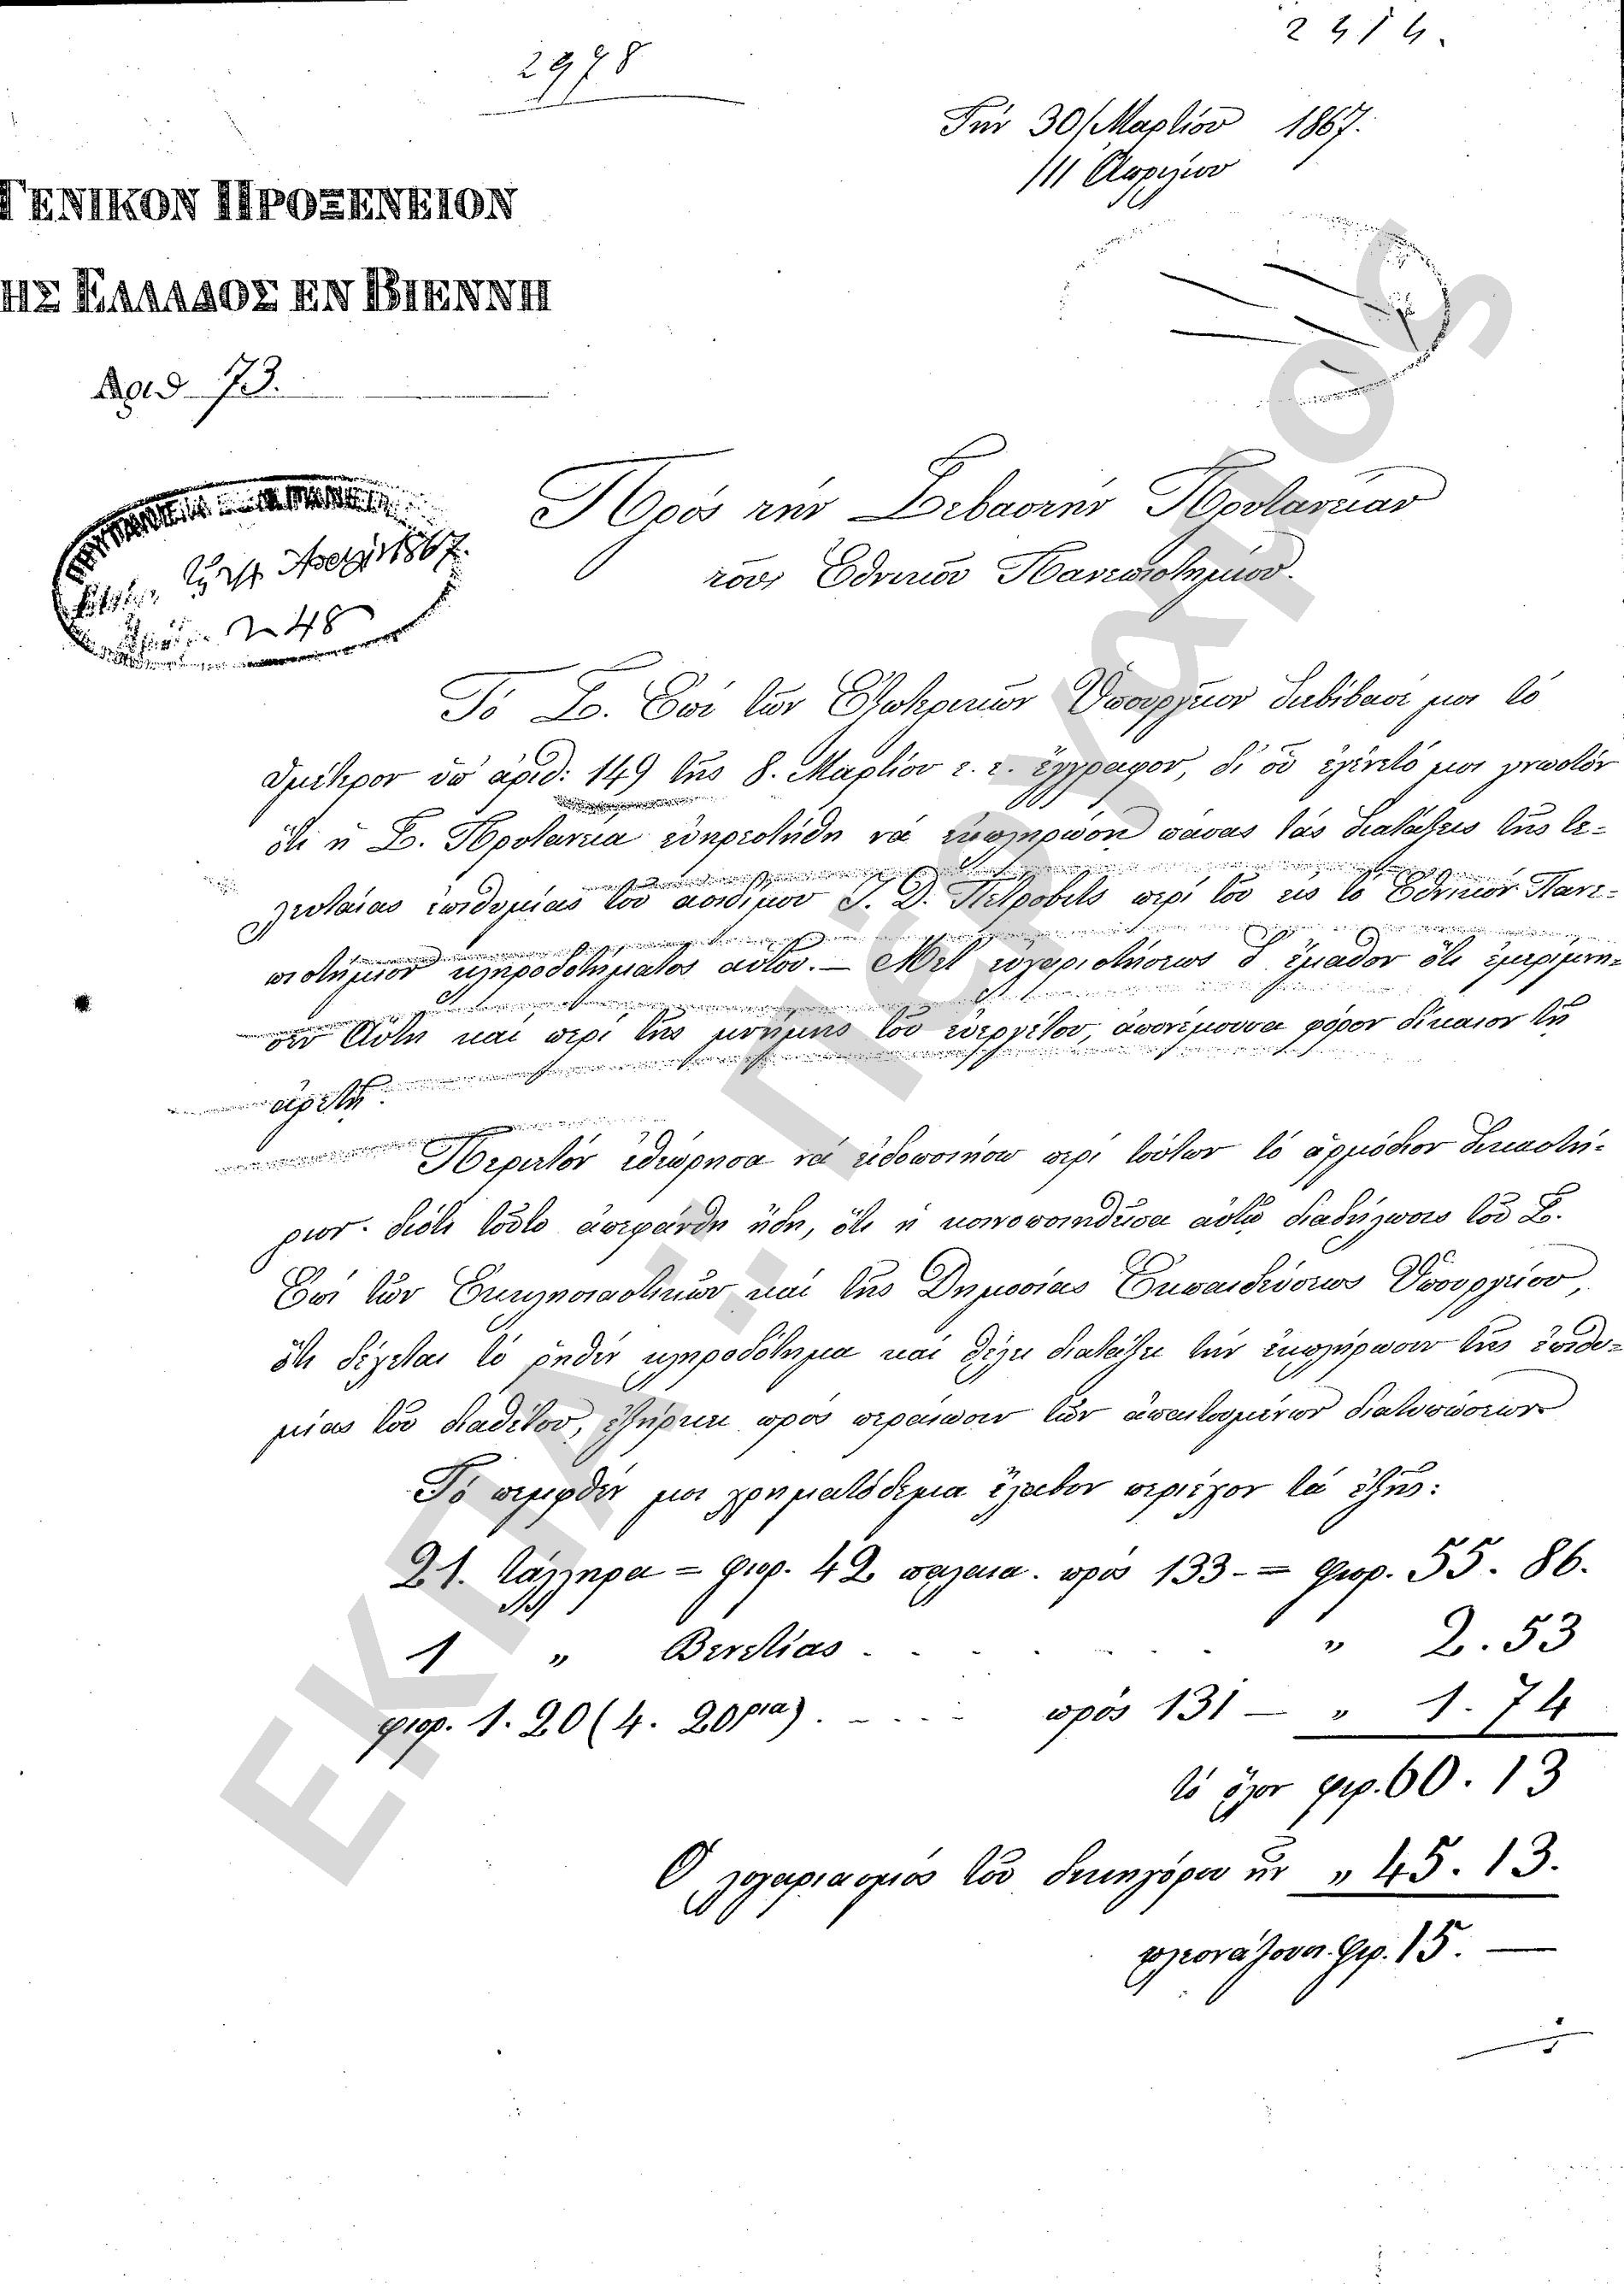 2978
2414.
Τὴν 30/Μαρτίου 1867.
/11 Ἀπριλίου
ΓΕΝΙΚΟΝ ΠΡΟΞΕΝΕΙΟΝ
ΗΣ ΕΛΛΑΔΟΣ ΕΝ ΒΙΕΝΝΗ
Ἀριθ 73.
1867.
248
Πρὸς τὴν Σεβαστὴν Πρυτανείαν
τοῦ Ἐθνικοῦ Πανεπιστημίου.
Τὸ Σ. Ἐπὶ τῶν Ἐξωτερικῶν Ὑπουργεῖον διεβίβασέ μοι τὸ
ὑμέτερον ὑπ' ἀριθ: 149 τῆς 8. Μαρτίου ἐ. ἔ. ἔγγραφον, δι' οὗ ἐγένετό μοι γνωστὸν
ὅτι ἡ Σ. Πρυτανεία εὐηρεστήθη νὰ ἐκπληρώσῃ πάσας τὰς διατάξεις τῆς τε-
λευταίας ἐπιθυμίας τοῦ ἀοιδίμου Ι. Δ. Πέτροβιτς περὶ τοῦ εἰς τὸ Ἐθνικὸν Πανε-
πιστήμιον κληροδοτήματος αὐτοῦ. — Μετ' εὐχαριστήσεως δ' ἔμαθον ὅτι ἐμερίμνη-
σεν Αὕτη καὶ περὶ τῆς μνήμης τοῦ εὐεργέτου, ἀπονέμουσα φόρον δίκαιον τῇ
ἀρετῇ.
Περιττὸν ἐθεώρησα νὰ εἰδοποιήσω περὶ τούτων τὸ ἁρμόδιον δικαστή-
ριον· διότι τοῦτο ἀπεφάνθη ἤδη, ὅτι ἡ κοινοποιηθεῖσα αὐτῷ διαδήλωσις τοῦ Σ.
Ἐπὶ τῶν Ἐκκλησιαστικῶν καὶ τῆς Δημοσίας Ἐκπαιδεύσεως Ὑπουργείου,
ὅτι δέχεται τὸ ῥηθὲν κληροδότημα καὶ θέλει διατάξει τὴν ἐκπλήρωσιν τῆς ἐπιθυ-
μίας τοῦ διαθέτου, ἐξήρκει πρὸς περαίωσιν τῶν ἀπαιτουμένων διατυπώσεων
Τὸ πεμφθέν μοι χρηματόδεμα ἔλαβον περιέχον τὰ ἑξῆς:
21. τάλληρα = φιορ. 42 παλαιὰ. πρὸς 133 - = φιορ. 55. 86.
1 „ Βενετίας . . . . . . . „ 2. 53
φιορ. 1. 20 (4. 20ρια) . . . . . πρὸς 131 — „ 1. 74
τὸ ὅλον φιρ. 60. 13
Ὁ λογαριασμὸς τοῦ δικηγόρου ἦν „ 45. 13.
πλεονάζουσι φιρ. 15. —